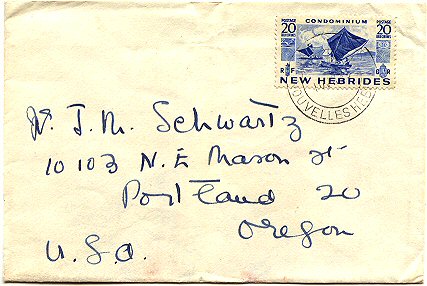 POSTAGE CONDOMINIUM POSTAGE
20 20
R F E R
NEW HEBRIDES
NOUVELLES HEB
J. M. Schwartz
10103 N.E Mason St
Portland 20
Oregon
U.S.A.